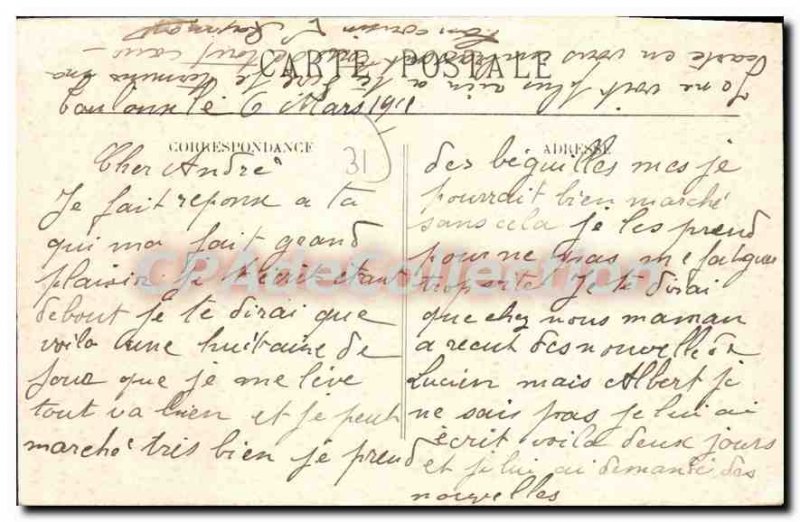 CARTE POSTALE
Toulouse le 6 Mars 1911
CORRESPONDANCE
31
Cher André
Je fait reponse a ta
qui ma fait grand
plaisir Je t'écrit etant
debout je te dirai que
voila une huitaine de
jour que je me lève
tout va bien et je peut
marché très bien je prend
ADRESSE
des béquilles mes je
pourrait bien marché
sans cela je les prend
pour ne pas me fatiguer
je te dirai
que chez nous maman
a recut des nouvelles de
Lucien mais Albert je
ne sais pas je lui ai
écrit voila deux jours
et je lui ai demandé des
nouvelles
Je ne voit plus rien a te dire je termine ma
carte en vous embrassant de tout
Ton cousin
CPArteCollection